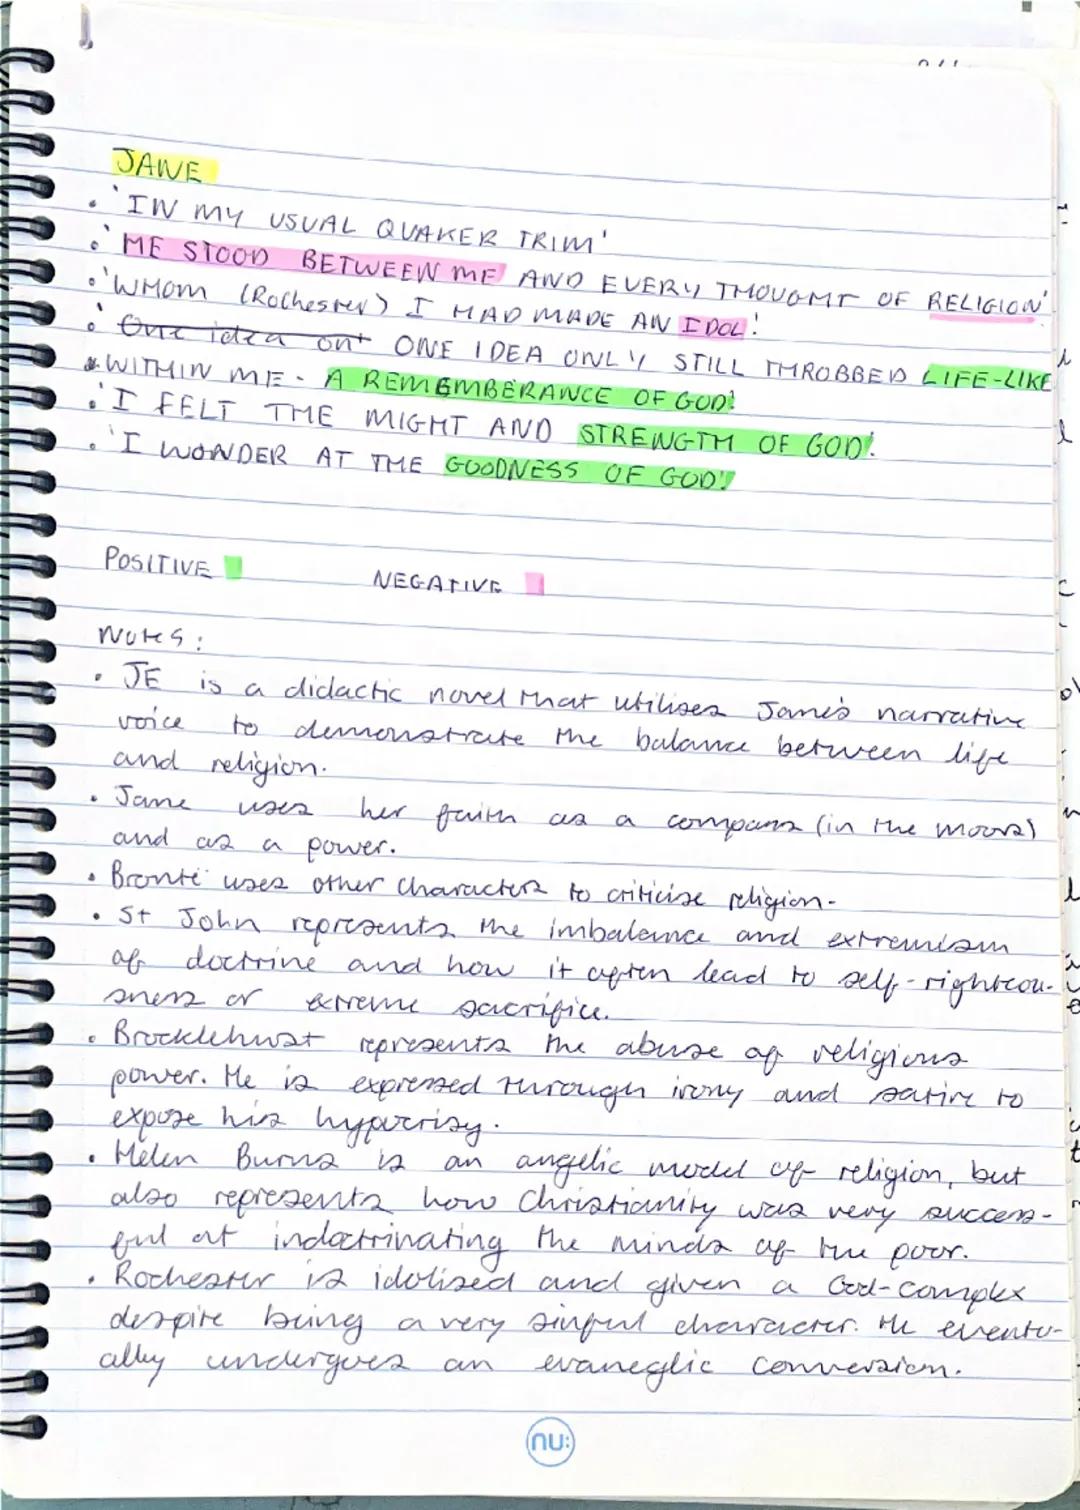 JANE
• 'IN MY USUAL QUAKER TRIM'
• 'HE STOOD BETWEEN ME AND EVERY THOUGHT OF RELIGION'.
• 'WHOM (Rochester) I HAD MADE AN IDOL'.
• 'One idea ont ONE IDEA ONLY STILL THROBBED LIFE-LIKE
WITHIN ME - A REMEMBERANCE OF GOD'.
• 'I FELT THE MIGHT AND STRENGTH OF GOD'.
• 'I WONDER AT THE GOODNESS OF GOD'.
POSITIVE NEGATIVE
Notes:
• JE is a didactic novel that utilises Jane's narrative
voice to demonstrate the balance between life
and religion.
• Jane uses her faith as a compass (in the moors)
and as a power.
• Brontë uses other characters to criticise religion.
• St John represents the imbalance and extremism
of doctrine and how it often lead to self-righteou-
sness or extreme sacrifice.
• Brocklehurst represents the abuse of religious
power. He is expressed through irony and satire to
expose his hypocrisy.
• Helen Burns is an angelic model of religion, but
also represents how Christianity was very success-
ful at indoctrinating the minds of the poor.
• Rochester is idolised and given a God-complex
despite being a very sinful character. He eventu-
ally undergoes an evaneglic conversion.
nu: